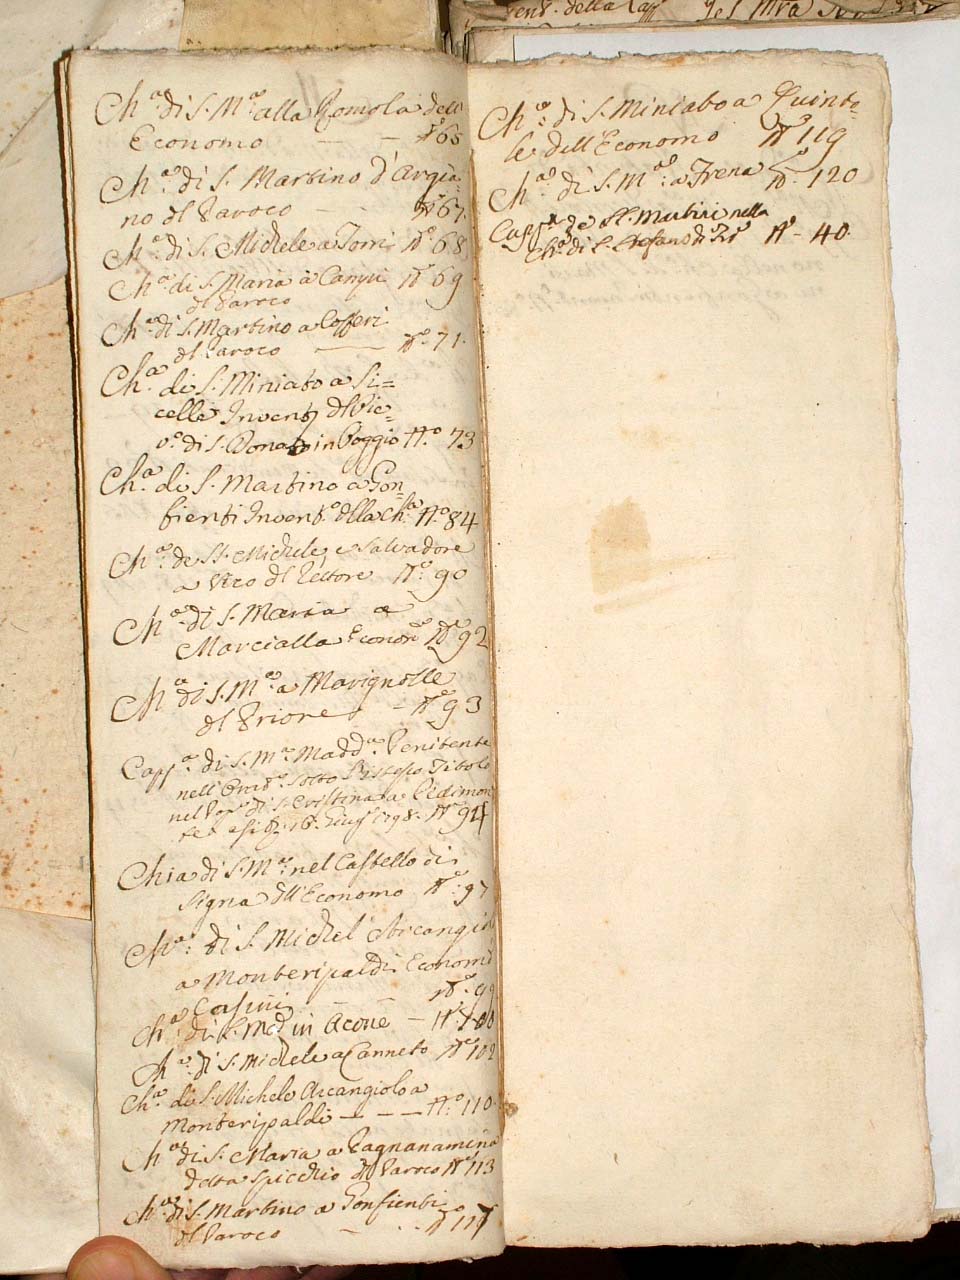 Ch.ª di S. M.ª alla Romola dell'
Economo — — N.º 65
Ch.ª di S. Martino d'Argia-
no dl Paroco — N.º 67.
Ch.ª di S. Michele a Torri N.º 68
Ch.ª di S. Maria a Campi N.º 69
dl Paroco
Ch.ª di S. Martino a Cofferi
dl Paroco — N.º 71.
Ch.ª di S. Miniato a Si=
celle Invent.º dl Pie-
v.º di S. Donato in Poggio N.º 73
Ch.ª di S. Martino a Gon-
fienti Invent.º dlla Ch.ª N.º 84
Ch.ª de SS. Michele, e Salvadore
a Vico dl Rettore N.º 90
Ch.ª di S. Maria a
Marcialla Econom.º N.º 92
Ch.ª di S. M.ª a Marignolle
dl Priore — N.º 93
Capp.ª di S. M.ª Madd.ª Penitente
nell' sotto l'istesso Titolo
nel Pop.º di S. Cristina a Pedimon
te 16. Giug.º 1798. N.º 94
Chia di S. M.ª nel Castello di
Signa dll'Economo N.º 97
Ch.ª di S. Michel Arcangiolo
a Monteripaldi Economo
Corsini — — N.º 99
Ch.ª di S. M.ª in Acone — N.º 100
Ch.ª di S. Michele a Canneto N.º 102
Ch.ª di S. Michele Arcangiolo a
Monteripaldi — — — N.º 110.
Ch.ª di S. Maria a Pagnanamina
detta Spicchio dl Paroco N.º 113
Ch.ª di S. Martino a Gonfienti
dl Paroco — N.º 117
Ch.ª di S. Miniato a Quinto-
le dell'Economo N.º 119
Ch.ª di S. M.ª a Frena N.º 120
Capp.ª de SS. Martiri nella
Ch.ª di S. Stefano N.º - 40.